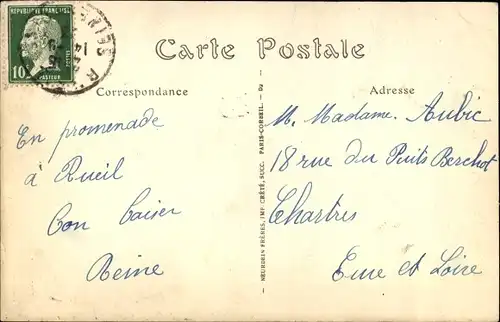 REPUBLIQUE FRANÇAISE
10
POSTES
PASTEUR
Carte Postale
Correspondance
Adresse
En promenade
à Rueil
Bon Baiser
Reine
NEURDEIN FRÈRES, IMP. CRÉTÉ, SUCC. PARIS-CORBEIL. - Du
M. Madame. Aubic
18 rue du Puits Berchot
Chartres
Eure et Loire